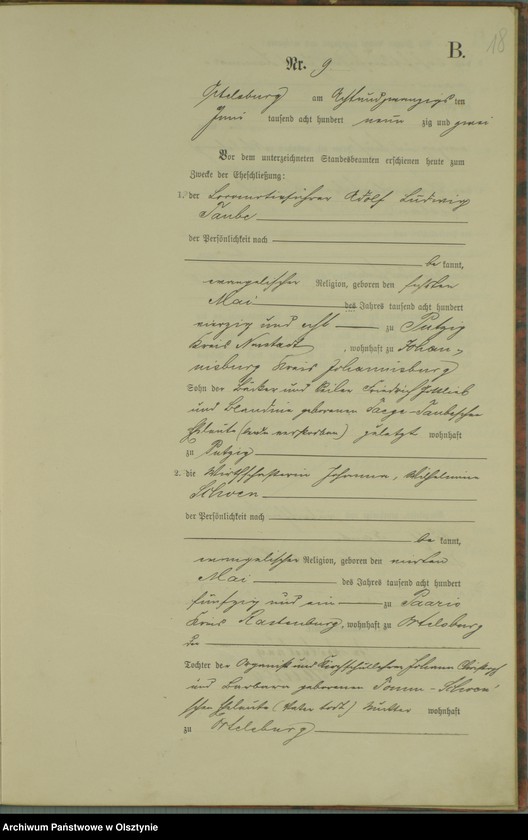 18
B.
Nr. 9
Ortelsburg am achtundzwanzigsten
Juni tausend acht hundert neun zig und zwei
Vor dem unterzeichneten Standesbeamten erschienen heute zum
Zwecke der Eheschließung:
1. der Locomotivführer Adolf Ludwig
Taube
der Persönlichkeit nach
be kannt,
evangelischer Religion, geboren den
Mai des Jahres tausend acht hundert
vierzig und acht zu Putzig
Kreis Neustadt, wohnhaft zu Johan-
nisburg Kreis Johannisburg
Sohn der Bäcker und Friedrich Gottlieb
und Blandine geborenen Taubeschen
Eheleute (beide verstorben) zuletzt wohnhaft
zu Putzig
2. die Wirthschafterin Johanna, Wilhelmine
Schoen
der Persönlichkeit nach
be kannt,
evangelischer Religion, geboren den vierten
Mai des Jahres tausend acht hundert
fünfzig und ein zu Paaris
Kreis Rastenburg, wohnhaft zu Ortelsburg
Tochter des Organist und Kirchschullehrer Johann Christoph
und Barbara geborenen Schoen'
schen Eheleute (Vater todt) Mutter wohnhaft
zu Ortelsburg
Archiwum Państwowe w Olsztynie